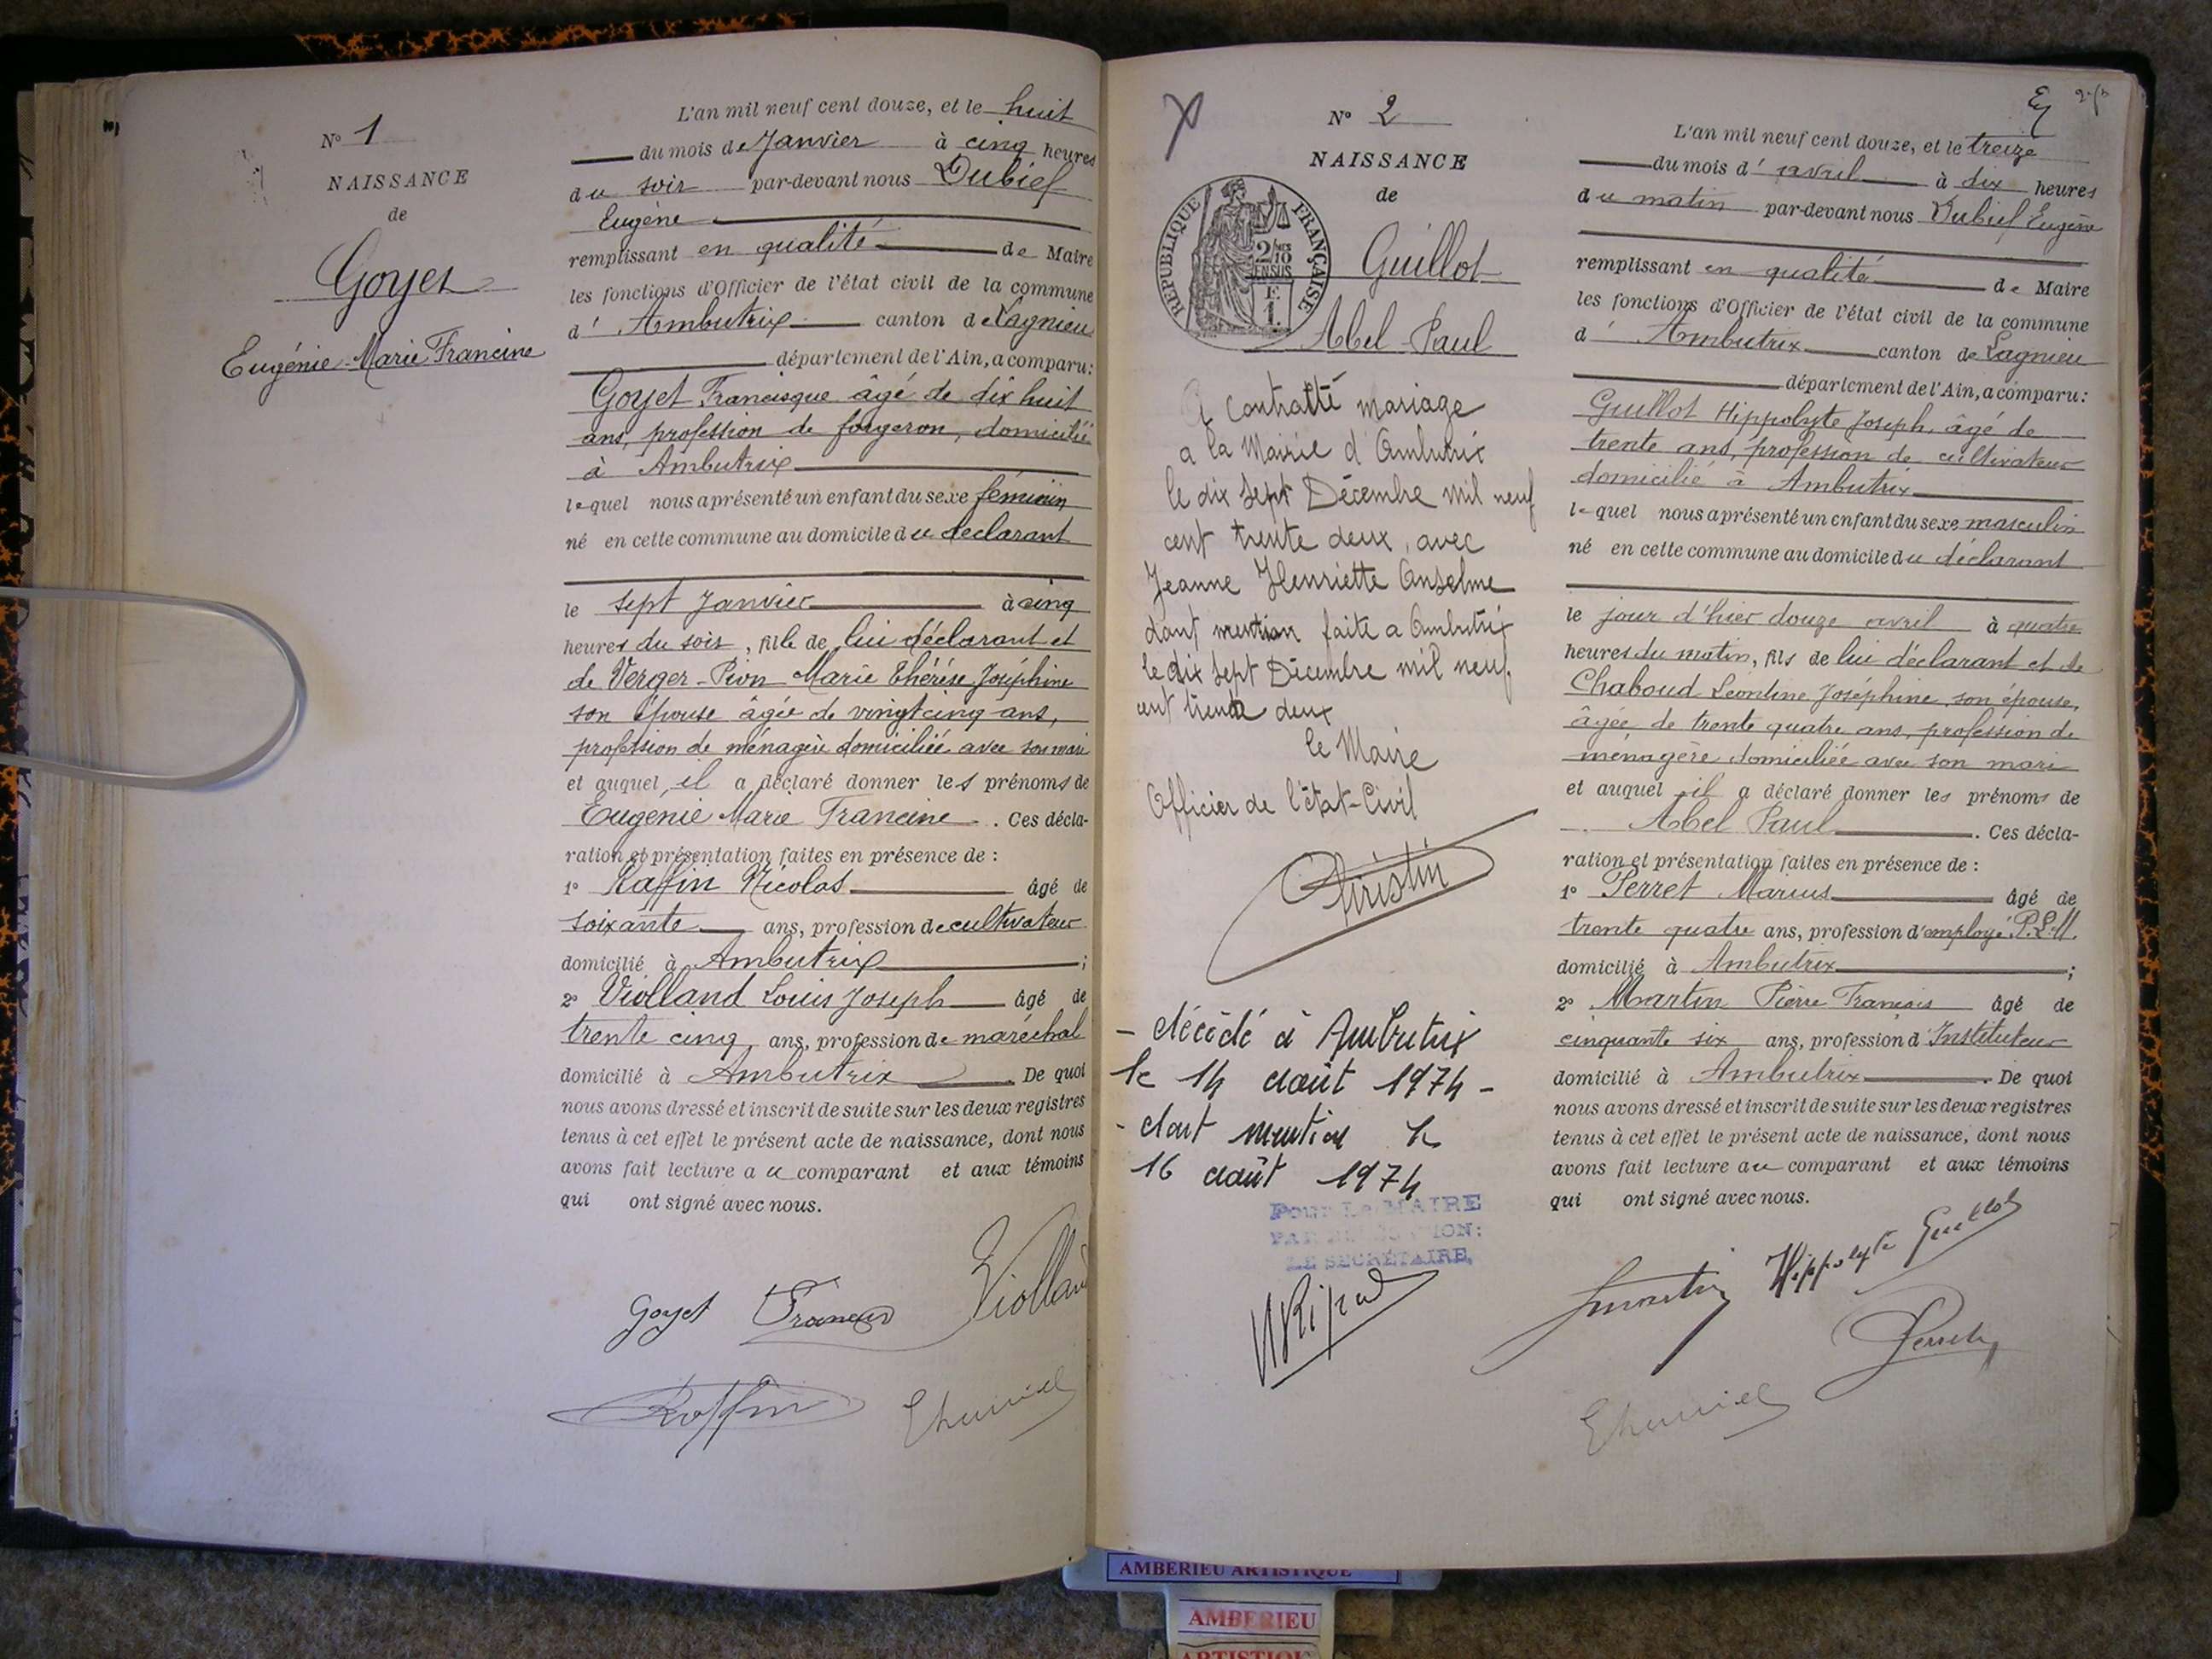 N° 1
NAISSANCE
de
Goyet
Eugénie Marie Francine
L'an mil neuf cent douze, et le huit
du mois de Janvier à cinq heures
du soir par-devant nous Dubief
Eugène
remplissant en qualité de Maire
les fonctions d'Officier de l'état civil de la commune
d' Ambutrix canton de Lagnieu
département de l'Ain, a comparu:
Goyet Francisque âgé de dix huit
ans, profession de forgeron, domicilié
à Ambutrix
lequel nous a présenté un enfant du sexe féminin
né en cette commune au domicile du déclarant
le sept Janvier à cinq
heures du soir, fille de lui déclarant et
de Verger-Pion Marie Thérèse Joséphine
son épouse âgée de vingt cinq ans,
profession de ménagère domiciliée avec son mari
et auquel il a déclaré donner les prénoms de
Eugénie Marie Francine. Ces décla-
ration et présentation faites en présence de :
1° Raffin Nicolas âgé de
soixante ans, profession de cultivateur
domicilié à Ambutrix ;
2° Violland Louis Joseph âgé de
trente cinq ans, profession de maréchal
domicilié à Ambutrix. De quoi
nous avons dressé et inscrit de suite sur les deux registres
tenus à cet effet le présent acte de naissance, dont nous
avons fait lecture au comparant et aux témoins
qui ont signé avec nous.
Goyet Violland
Raffin
N° 2
NAISSANCE
de
RÉPUBLIQUE FRANÇAISE
2/10
EN SUS
F.
1.
Guillot
Abel Paul
A Contratté mariage
a la Mairie d'Ambutrix
le dix sept Décembre mil neuf
cent trente deux, avec
Jeanne Henriette Anselme
dont mention faite a Ambutrix
le dix sept Décembre mil neuf
cent trente deux
le Maire
Officier de l'état-Civil
- décédé à Ambutrix
le 14 août 1974 -
- dont mention le
16 août 1974
POUR LE MAIRE
LE SECRÉTAIRE,
L'an mil neuf cent douze, et le treize
du mois d' avril à dix heures
du matin par-devant nous Dubief Eugène
remplissant en qualité de Maire
les fonctions d'Officier de l'état civil de la commune
d' Ambutrix canton de Lagnieu
département de l'Ain, a comparu:
Guillot Hippolyte Joseph, âgé de
trente ans, profession de cultivateur
domicilié à Ambutrix
lequel nous a présenté un enfant du sexe masculin
né en cette commune au domicile du déclarant
le jour d'hier douze avril à quatre
heures du matin, fils de lui déclarant et de
Chaboud Léontine Joséphine, son épouse,
âgée de trente quatre ans, profession de
ménagère domiciliée avec son mari
et auquel il a déclaré donner les prénoms de
Abel Paul. Ces décla-
ration et présentation faites en présence de :
1° Perret Marius âgé de
trente quatre ans, profession d'employé P.L.M.
domicilié à Ambutrix ;
2° Martin Pierre François âgé de
cinquante six ans, profession d'Instituteur
domicilié à Ambutrix. De quoi
nous avons dressé et inscrit de suite sur les deux registres
tenus à cet effet le présent acte de naissance, dont nous
avons fait lecture au comparant et aux témoins
qui ont signé avec nous.
Hippolyte Guillot
Perret
AMBERIEU ARTISTIQUE
AMBERIEU
ARTISTIQUE